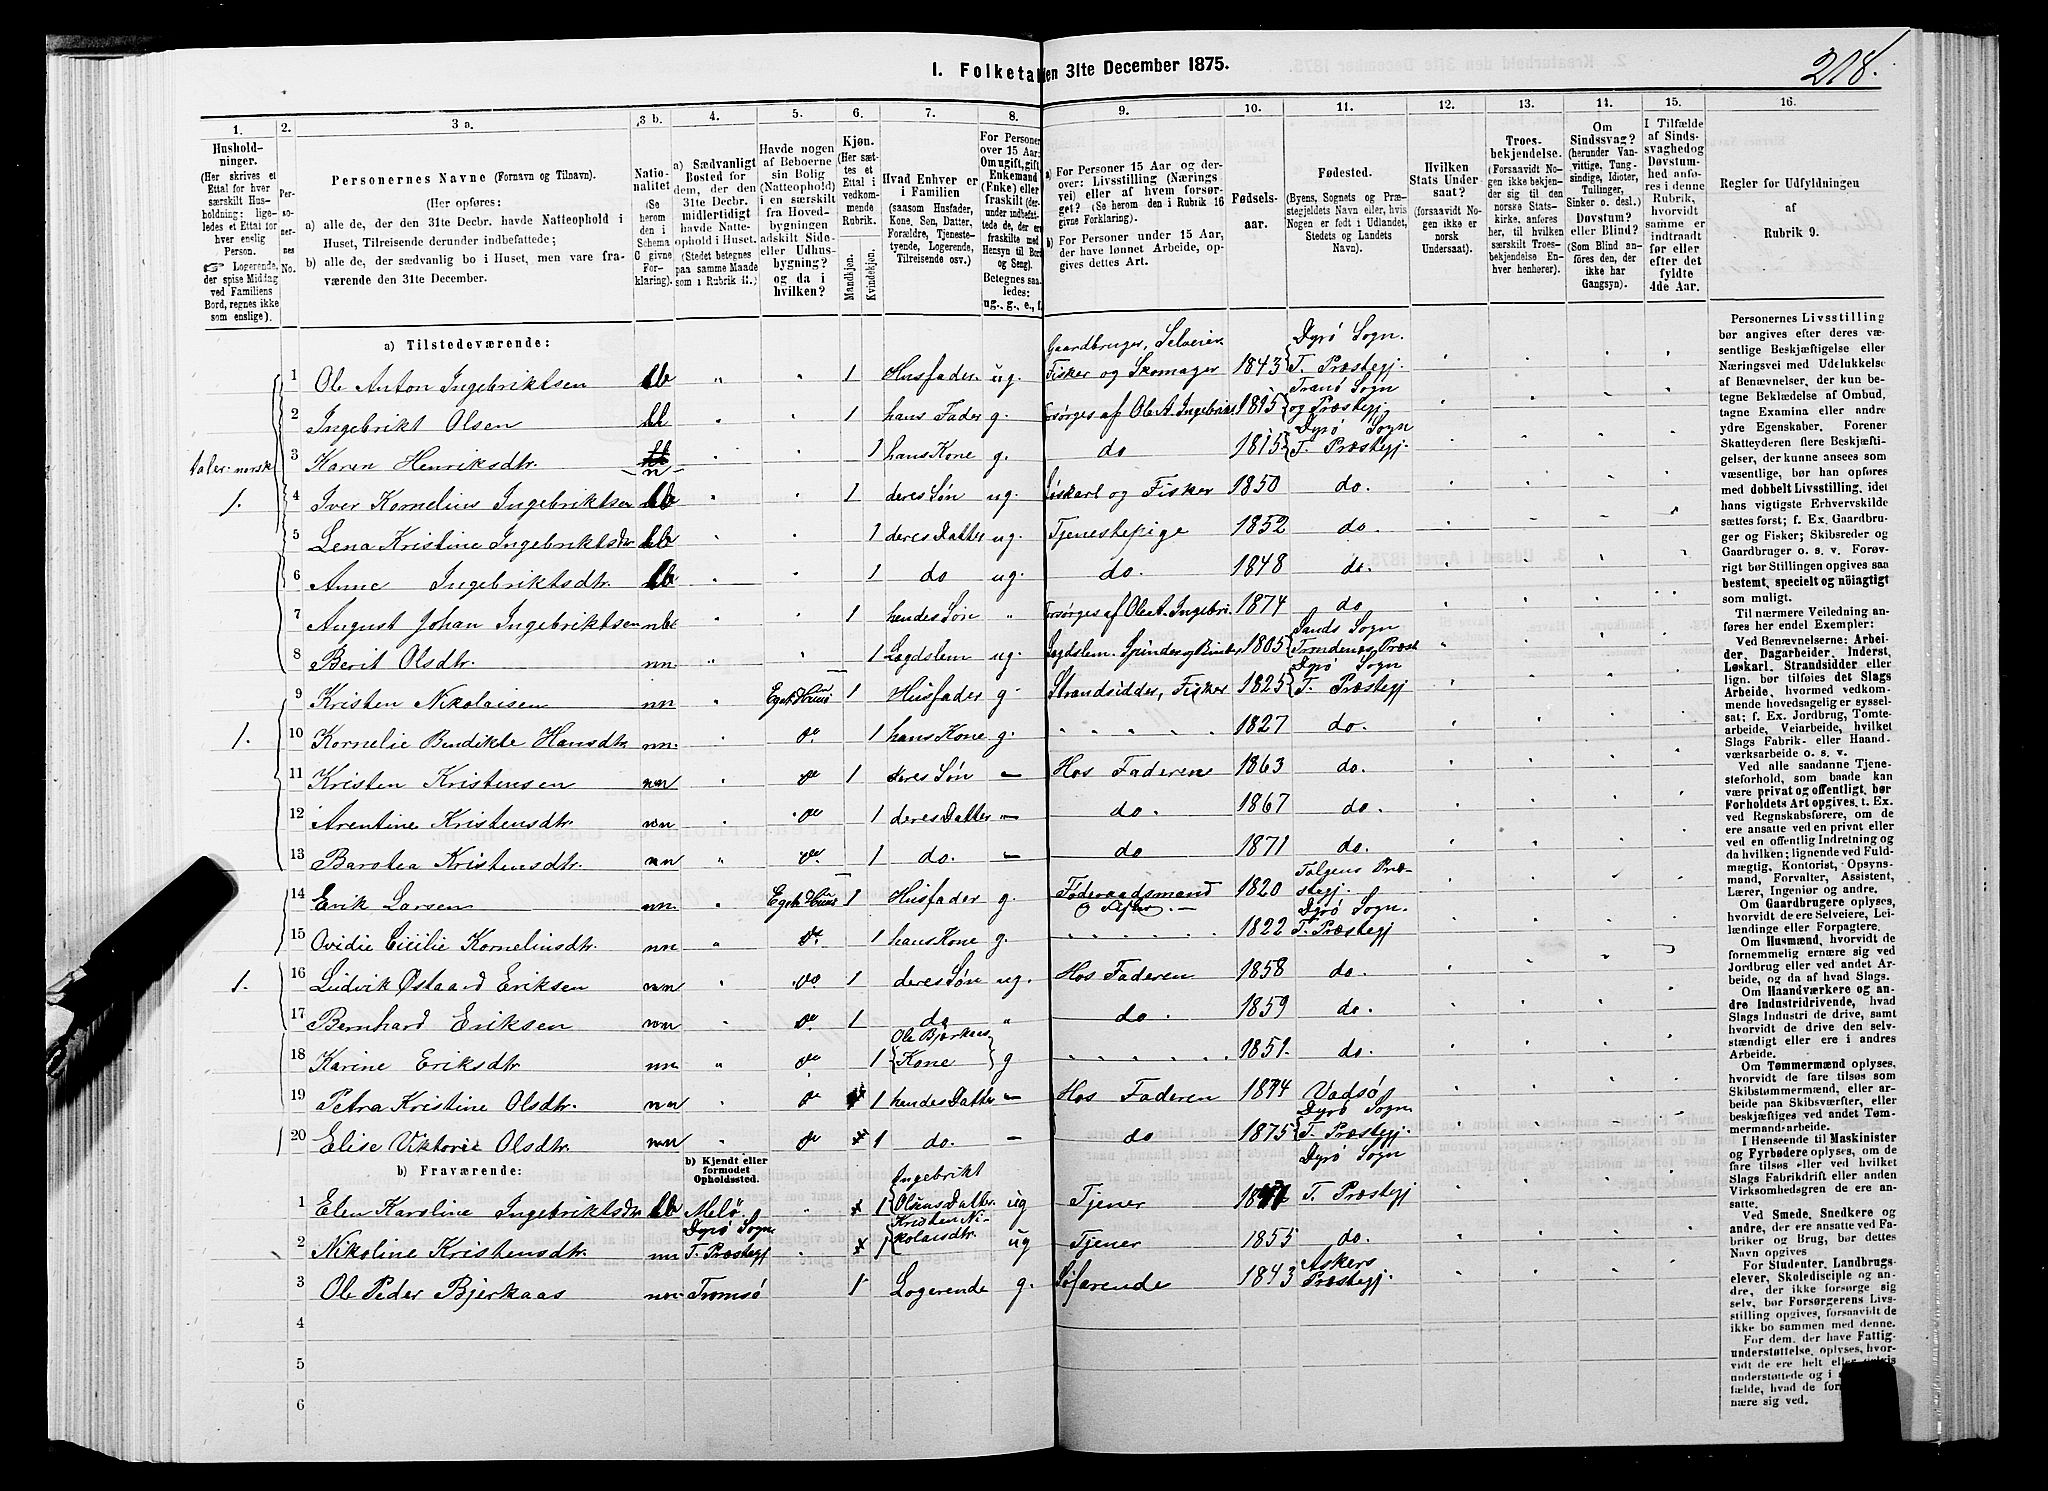 1. Folketal den 31te December 1875.
218.
1.
2.
3 a.
3 b.
4.
5.
6.
7.
8.
9.
10.
11.
12.
13.
14.
15.
16.
Hushold-
ninger.
(Her skrives et
Ettal for hver
særskilt Hus-
holdning; lige-
ledes et Ettal for
hver enslig
Person.
☞ Logerende,
der spise Middag
ved Familiens
Bord, regnes ikke
som enslige).
Per-
so-
ner-
nes
No.
Personernes Navne (Fornavn og Tilnavn).
(Her opføres:
a) alle de, der den 31te Decbr. havde Natteophold i
Huset, Tilreisende derunder indbefattede;
b) alle de, der sædvanlig bo i Huset, men vare fra-
værende den 31te December.
Natio-
nalitet
(Se
herom
den i
Schema
C givne
For-
klaring).
a) Sædvanligt
Bosted for
dem, der den
31te Decbr.
midlertidigt
havde Natte-
ophold i Huset.
(Stedet betegnes
paa samme Maade
som i Rubrik 11.)
Havde nogen
af Beboerne
sin Bolig
(Natteophold)
i en særskilt
fra Hoved-
bygningen
adskilt Side-
eller Udhus-
bygning?
og da i
hvilken?
Kjøn.
(Her sæt-
tes et
Ettal i
vedkom-
mende
Rubrik.
Mandkjøn.
Kvindekjøn.
Hvad Enhver er
i Familien
(saasom Husfader,
Kone, Søn, Datter,
Forældre, Tjeneste-
tyende, Logerende,
Tilreisende osv.)
For Personer
over 15 Aar:
Om ugift, gift,
Enkemand
(Enke) eller
fraskilt (der-
under indbefat-
tede de, der er
fraskilte med
Hensyn til Bord
og Seng).
Betegnes saa-
ledes:
ug., g., e., f.
a) For Personer 15 Aar og der-
over: Livsstilling (Nærings-
vei) eller af hvem forsør-
get? (Se herom den i Rubrik 16
givne Forklaring.)
b) For Personer under 15 Aar,
der have lønnet Arbeide, op-
gives dettes Art.
Fødsels-
aar.
Fødested.
(Byens, Sognets og Præ-
stegjeldets Navn eller, hvis
Nogen er født i Udlandet,
Stedets og Landets
Navn).
Hvilken
Stats Under-
saat?
(forsaavidt No-
gen ikke er
norsk
Undersaat).
Troes-
bekjendelse.
(Forsaavidt No-
gen ikke bekjen-
der sig til den
norske Stats-
kirke, anføres
her, til hvilken
særskilt Troes-
bekjendelse En-
hver henhører).
Om
Sindssvag?
(herunder Van-
vittige, Tung-
sindige, Idioter,
Tullinger,
Sinker o. desl.)
Døvstum?
eller Blind?
(Som Blind an-
føres den, der
ikke har
Gangsyn).
I Tilfælde
af Sinds-
svaghed og
Døvstum-
hed anfø-
res i denne
Rubrik,
hvorvidt
samme er
indtraadt
før eller
efter det
fyldte
4de Aar.
Regler for Udfyldningen
af
Rubrik 9.
a) Tilstedeværende:
1 Ole Anton Ingebriktsen lb " " 1 Husfader ug. Gaardbruger, Selveier Fisker og Skomager 1843 Dyrø Sogn. T. Præstegj.
2 Ingebrikt Olsen bl 1 hans Fader g. Forsørges af Ole A. Ingebrik 1815 Tranø Sogn og Præstegj
taler norsk
3 Karen Henriksdtr. n 1 hans Kone g. do 1815 Dyrø Sogn T. Præstegj.
1. 4 Iver Kornelius Ingebriktsen lb 1 deres Søn ug. Løskarl og Fisker 1850 do.
5 Lena Kristine Ingebriktsdr lb 1 deres Datter ug. Tjenestepige 1852 do.
6 Anne Ingebriktsdtr. lb 1 do ug. do. 1848 do.
7 August Johan Ingebriktsen nbl 1 hendes Søn " Forsørges af Ole A. Ingebri. 1874 do
8 Berit Olsdtr. nn " 1 Lægdslem ug. Lægdslem. Spinder og Binder 1805 Sands Sogn Trondenæs Præst
9 Kristen Nikolaisen nn " Eget Huus 1 Husfader g. Strandsidder, Fisker 1825 Dyrø Sogn T. Præstegj
1. 10 Kornelie Bendikte Hansdtr nn. do 1 hans Kone g. " " " " " 1827 do.
11 Kristen Kristensen nn do 1 deres Søn — Hos Faderen 1863 do.
12 Arentine Kristensdtr. nn do 1 deres Datter — do. 1867 do.
13 Barotea Kristensdtr. nn " do. 1 do. — do 1871 do.
14 Erik Larsen nn " Eget Huus 1 Husfader g. Føderaadsmand o Fisker. — 1820 Tolgens Præ- stegj.
15 Ovidie Cicilie Korneliusdtr. nn " do. 1 hans Kone g. " " " " " 1822 Dyrø Sogn. T. Præstegj
1. 16 Ludvik Østaard Eriksen nn do 1 deres Søn ug. Hos Faderen 1858 do.
17 Bernhard Eriksen nn do 1 do " do. 1859 do.
18 Karine Eriksdtr nn " do 1 Ole Bjerkaas Kone g " " " " " 1851. do.
19 Petra Kristine Olsdtr. nn do 1 hendes Datter — Hos Faderen 1874 Vadsø
20 Elise Viktorie Olsdtr. nn do 1 do. — do 1875 Dyrø Sogn. T. Præstegj.
b) Fraværende:
b) Kjendt eller
formodet
Opholdssted.
1 Elen Karoline Ingebriktsdr lb Melø. Dyrø Sogn. 1 Ingebrikt Olsens Datter. ug Tjener Dyrø Sogn T. Præstegj
2 Nikoline Kristensdtr. nn T. Præstegj 1 Kristen Ni- kolaisdtr. ug Tjener 1855 do.
3 Ole Peder Bjerkaas nn Tromsø 1 Logerende g. Søfarende 1843 Askers Præstegj.
4
5
6
Personernes Livsstilling
bør angives efter deres væ-
sentlige Beskjæftigelse eller
Næringsvei med Udelukkelse
af Benævnelser, der kun be-
tegne Beklædelse af Ombud,
tagne Examina eller andre
ydre Egenskaber. Forener
Skatteyderen flere Beskjæfti-
gelser, der kunne ansees som
væsentlige, bør han opføres
med dobbelt Livsstilling, idet
hans vigtigste Erhvervskilde
sættes først; f. Ex. Gaardbru-
ger og Fisker; Skibsreder og
Gaardbruger o. s. v. Forøv-
rigt bør Stillingen opgives saa
bestemt, specielt og nöiagtigt
som muligt.
Til nærmere Veiledning an-
føres her endel Exempler:
Ved Benævnelserne: Arbei-
der, Dagarbeider, Inderst,
Løskarl, Strandsidder eller
lign. bør tilføies det Slags
Arbeide, hvormed vedkom-
mende hovedsagelig er syssel-
sat; f. Ex. Jordbrug, Tomte-
arbeide, Veiarbeide, hvilket
Slags Fabrik- eller Haand-
værksarbeide o. s. v.
Ved alle saadanne Tjene-
steforhold, som baade kan
være privat og offentligt, bør
Forholdets Art opgives, t. Ex.
ved Regnskabsførere, om de
ere ansatte ved en privat eller
ved en offentlig Indretning og
da hvilken; lignende ved Fuld-
mægtig, Kontorist, Opsyns-
mand, Forvalter, Assistent,
Lærer, Ingeniør og andre.
Om Gaardbrugere oplyses,
hvorvidt de ere Selveiere, Lei-
lændinge eller Forpagtere.
Om Husmænd, hvorvidt de
fornemmelig ernære sig ved
Jordbrug eller ved andet Ar-
beide, og da af hvad Slags.
Om Haandværkere og an-
dre Industridrivende, hvad
Slags Industri de drive, samt
hvorvidt de drive den selv-
stændigt eller ere i andres
Arbeide.
Om Tømmermænd oplyses,
hvorvidt de fare tilsøs som
Skibstømmermænd, eller ar-
beide paa Skibsværfter, eller
beskjæftiges ved andet Tøm-
mermand-arbeide.
I Henseende til Maskinister
og Fyrbødere oplyses, om de
fare tilsøs eller ved hvilket
Slags Fabrikdrift eller anden
Virksomhedsgren de ere an-
satte.
Ved Smede, Snedkere og
andre, der ere ansatte ved Fa-
briker og Brug, bør dettes
Navn opgives
For Studenter, Landbrugs-
elever, Skoledisciple og an-
dre, der ikke forsørge sig
selv, bør Forsørgerens Livs-
stilling opgives, forsaavidt de
ikke bo sammen med denne.
For dem, der have Fattig-
understøttelse, oplyses, hvor-
vidt de ere helt eller
understøttede og i
fælde, hvad de for
nære sig ved.